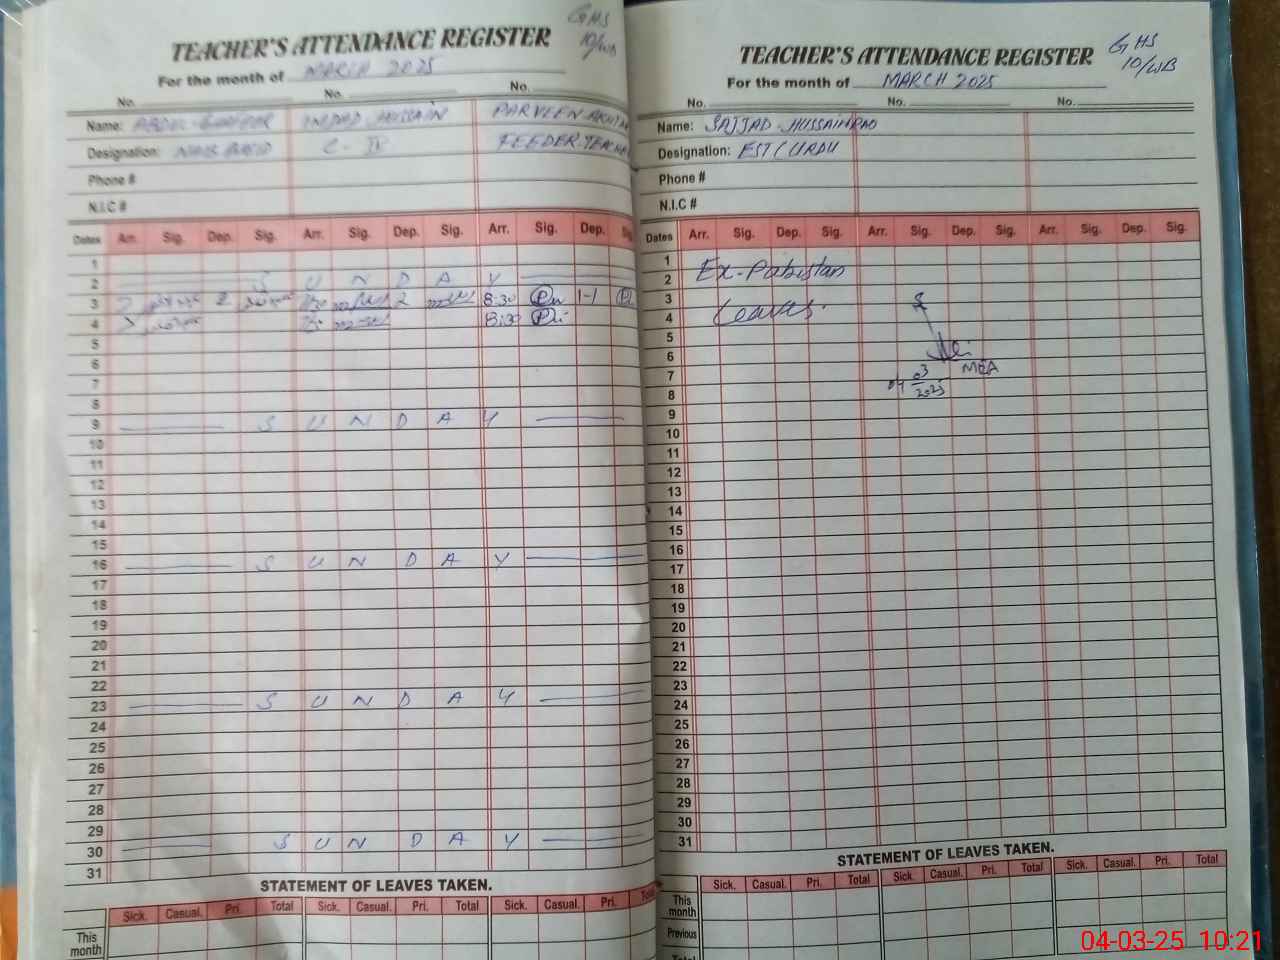 GHS
10/WB
TEACHER'S ATTENDANCE REGISTER
For the month of MARCH 2025
No. No. No.
Name: ABDUL GHAFOOR IMDAD HUSSAIN PARVEEN AKHTAR
Designation: NAIB QASID C-IV FEEDER TEACH
Phone #
N.I.C #
Dates Arr. Sig. Dep. Sig. Arr. Sig. Dep. Sig. Arr. Sig. Dep. Sig.
1
2 S U N D A Y
3 2 8:30 1-1
4 8:30
5
6
7
8
9 S U N D A Y
10
11
12
13
14
15
16 S U N D A Y
17
18
19
20
21
22
23 S U N D A Y
24
25
26
27
28
29
30 S U N D A Y
31
STATEMENT OF LEAVES TAKEN.
Sick. Casual. Pri. Total Sick. Casual. Pri. Total Sick. Casual. Pri. Total
This month
GHS
10/WB
TEACHER'S ATTENDANCE REGISTER
For the month of MARCH 2025
No. No. No.
Name: SAJJAD HUSSAIN RAO
Designation: EST (URDU
Phone #
N.I.C #
Dates Arr. Sig. Dep. Sig. Arr. Sig. Dep. Sig. Arr. Sig. Dep. Sig.
1
2 Ex-Pakistan
3 Leaves.
4
5
6
7 MEA
8 04 03 2025
9
10
11
12
13
14
15
16
17
18
19
20
21
22
23
24
25
26
27
28
29
30
31
STATEMENT OF LEAVES TAKEN.
Sick. Casual. Pri. Total Sick. Casual. Pri. Total Sick. Casual. Pri. Total
This month
Previous
Total
04-03-25 10:21